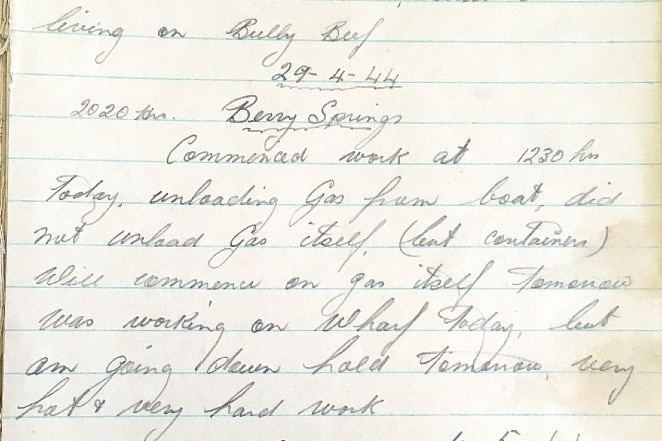 living on Bully Beef
29-4-44
2020 Hrs. Berry Springs
Commenced work at 1230 hrs
Today, unloading Gas from boat, did
not unload Gas itself, (but containers)
Will commence on gas itself Tomorrow
Was working on Wharf Today, but
am going down hold Tomorrow, very
hot & very hard work